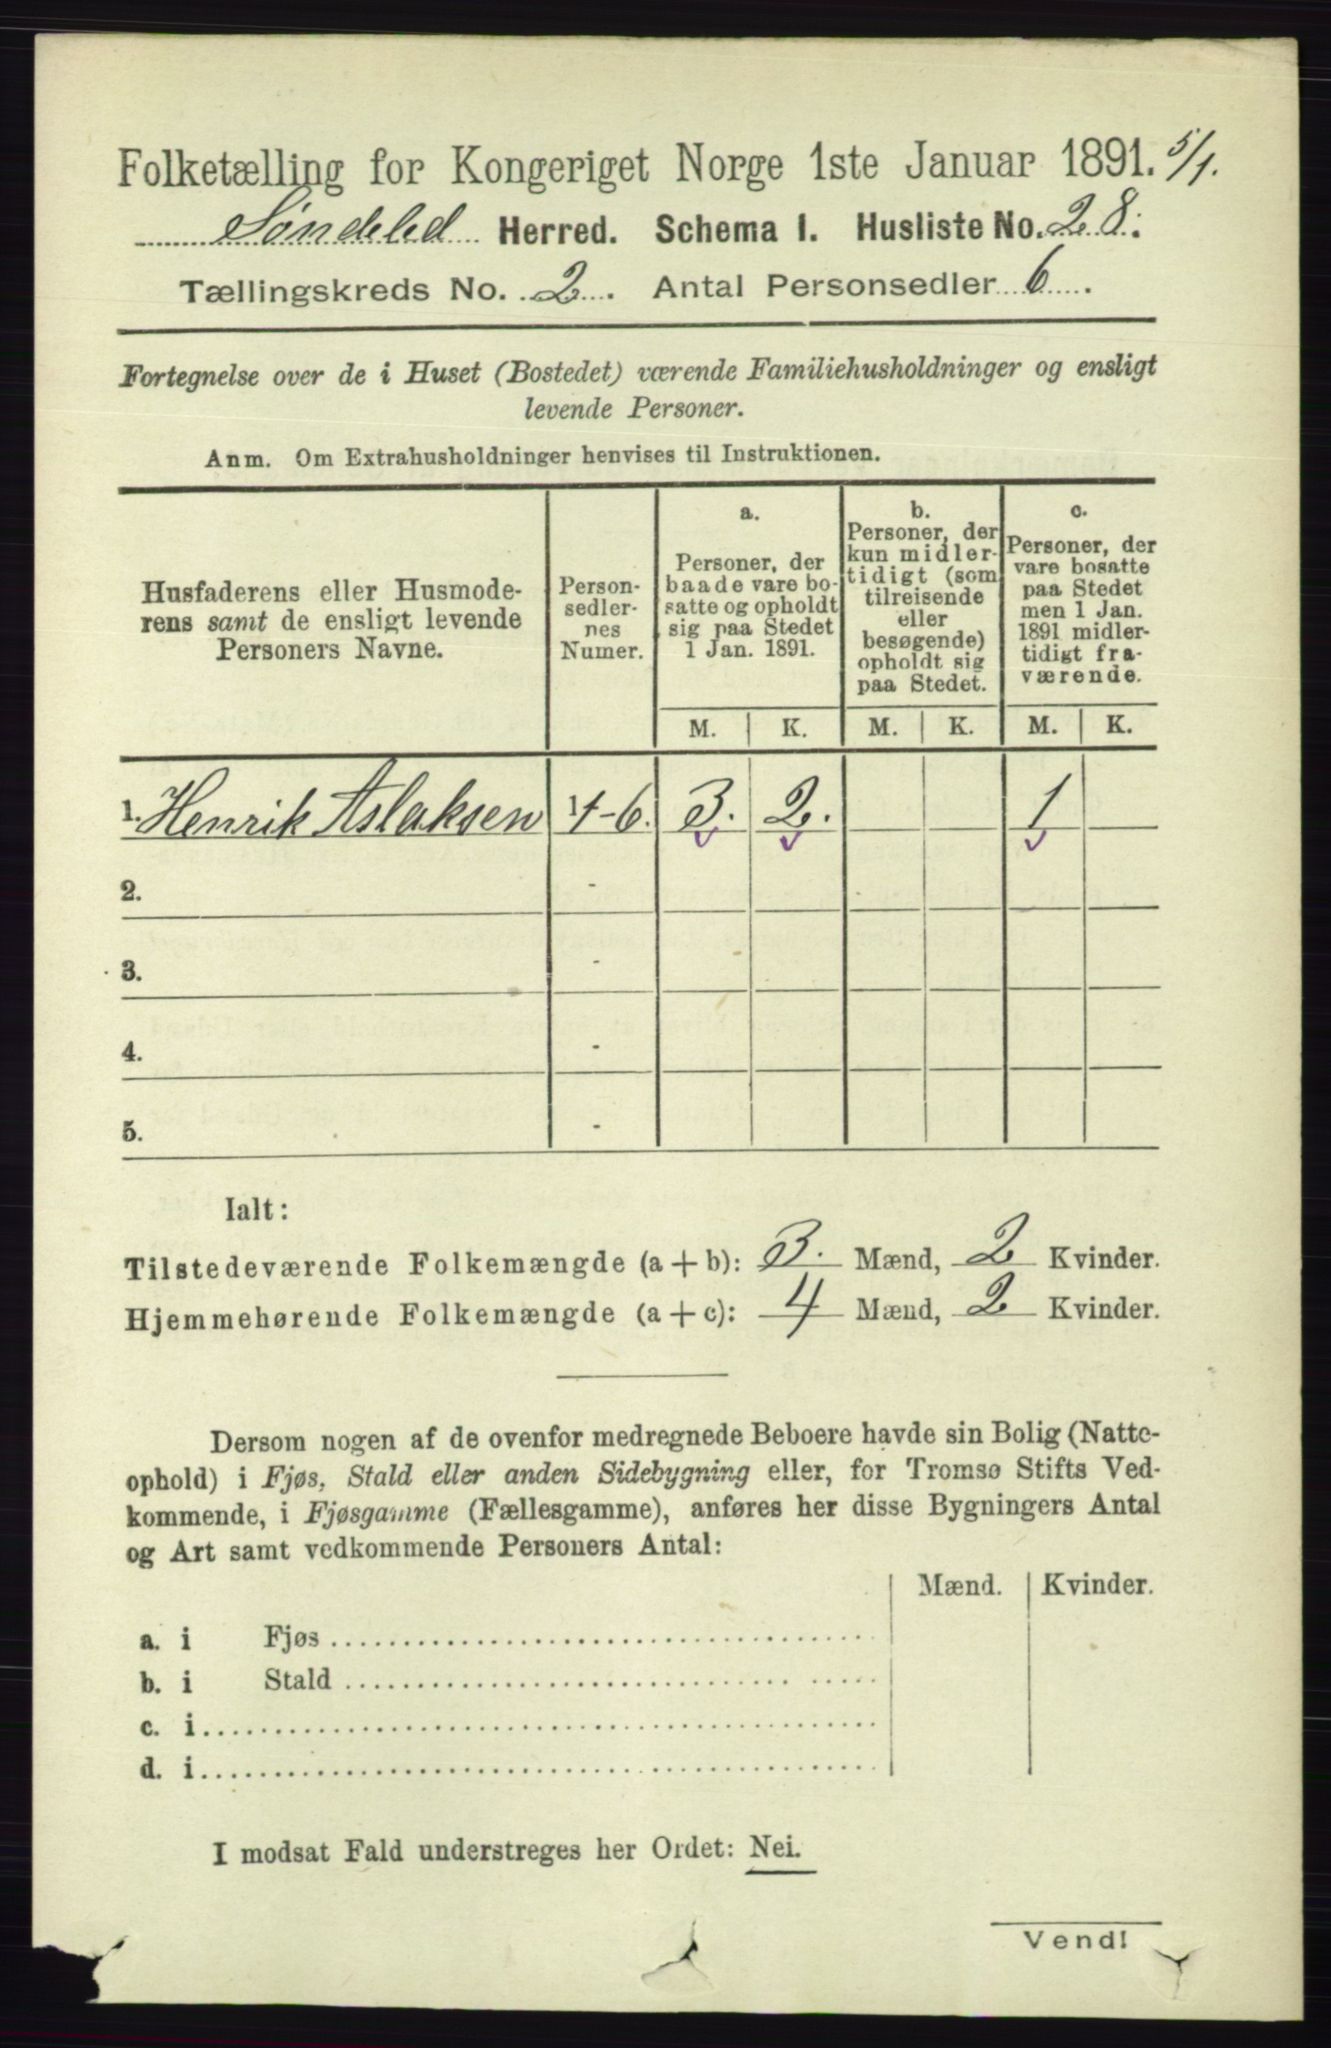 Folketælling for Kongeriget Norge 1ste Januar 1891. 5/1.
Søndeled Herred. Schema I. Husliste No. 28.
Tællingskreds No. 2. Antal Personsedler 6.
Fortegnelse over de i Huset (Bostedet) værende Familiehusholdninger og ensligt
levende Personer.
Anm. Om Extrahusholdninger henvises til Instruktionen.
Husfaderens eller Husmode-
rens samt de ensligt levende
Personers Navne.
Person-
sedler-
nes
Numer.
a.
Personer, der
baade vare bo-
satte og opholdt
sig paa Stedet
1 Jan. 1891.
b.
Personer, der
kun midler-
tidigt (som
tilreisende
eller
besøgende)
opholdt sig
paa Stedet.
c.
Personer, der
vare bosatte
paa Stedet
men 1 Jan.
1891 midler-
tidigt fra-
værende.
M. K. M. K. M. K.
1. Henrik Aslaksen 1-6. 3. 2. 1
2. -
3. -
4. -
5. -
Ialt:
Tilstedeværende Folkemængde (a + b): 3. Mænd, 2 Kvinder.
Hjemmehørende Folkemængde (a + c): 4 Mænd, 2 Kvinder.
Dersom nogen af de ovenfor medregnede Beboere havde sin Bolig (Natte-
ophold) i Fjøs, Stald eller anden Sidebygning eller, for Tromsø Stifts Ved-
kommende, i Fjøsgamme (Fællesgamme), anføres her disse Bygningers Antal
og Art samt vedkommende Personers Antal:
Mænd. Kvinder.
a. i Fjøs
b. i Stald
c. i
d. i
I modsat Fald understreges her Ordet: Nei.
Vend!